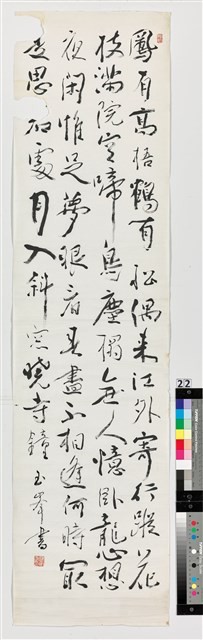 鳳有高梧鶴有松偶來江外寄行蹤花
枝滿院空啼鳥塵榻無人憶臥龍心想
夜閑惟足夢眼看春盡不相逢何時最
是思君處月入斜窓曉寺鐘 玉峯書
22